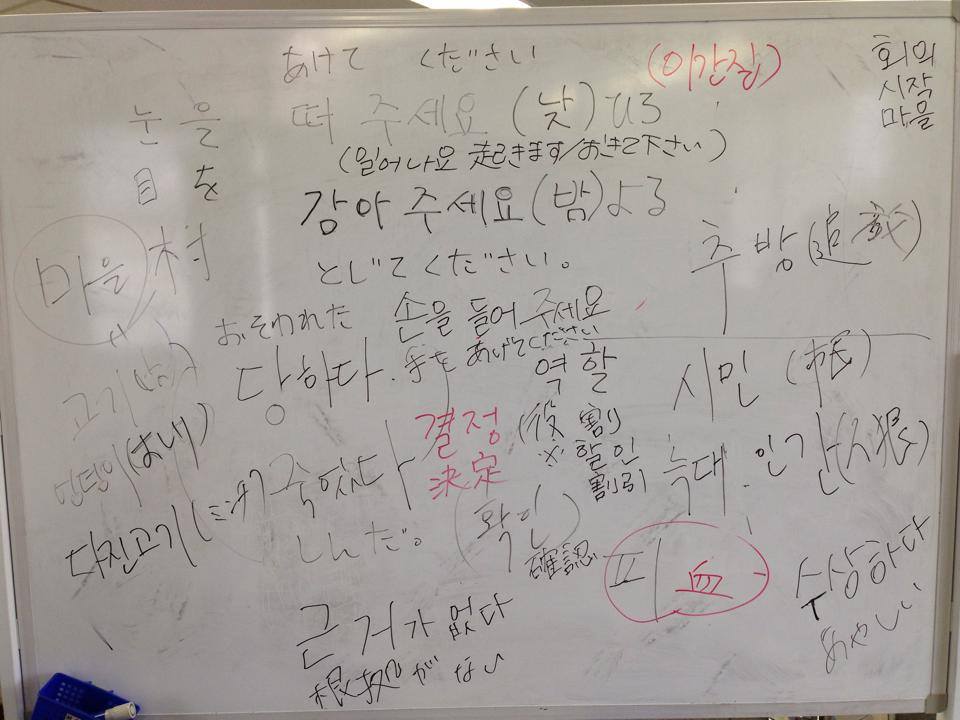 あけて ください
(이간집)
회의
시작
마을
눈을 떠 주세요 (낮) ひる
(일어나요 起きます/おきて下さい)
目を
강아 주세요 (밤) よる
とじてください。
마을 村
추방 (追放)
おそわれた
손을 들어 주세요
手を あげてください
당하다.
역할
(役割)
※ 할인
割引
시민 (市民)
고기
결정
決定
늑대.인간 (人狼)
다진고기 (ミンチ)
죽었다
しんだ。
(확인)
確認
피 血
수상하다
あやしい
근거가 없다
根拠が ない